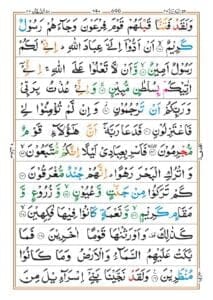 وَلَقَدْ فَتَنَّا قَبْلَهُمْ قَوْمَ فِرْعَوْنَ وَجَآءَهُمْ رَسُوْلٌ
كَرِيْمٌ ۙ اَنْ اَدُّوْۤا اِلَيَّ عِبَادَ اللّٰهِ ؕ اِنِّيْ لَكُمْ
رَسُوْلٌ اَمِيْنٌ ۙ وَّاَنْ لَّا تَعْلُوْا عَلَى اللّٰهِ ۚ اِنِّيْۤ
اٰتِيْكُمْ بِسُلْطٰنٍ مُّبِيْنٍ ۚ وَاِنِّيْ عُذْتُ بِرَبِّيْ
وَرَبِّكُمْ اَنْ تَرْجُمُوْنِ ۚ وَاِنْ لَّمْ تُؤْمِنُوْا لِيْ
فَاعْتَزِلُوْنِ ۚ فَدَعَا رَبَّهٗۤ اَنَّ هٰۤؤُلَآءِ قَوْمٌ
مُّجْرِمُوْنَ ۚ فَاَسْرِ بِعِبَادِيْ لَيْلًا اِنَّكُمْ مُّتَّبَعُوْنَ ۙ
وَاتْرُكِ الْبَحْرَ رَهْوًا ؕ اِنَّهُمْ جُنْدٌ مُّغْرَقُوْنَ
كَمْ تَرَكُوْا مِنْ جَنّٰتٍ وَّعُيُوْنٍ ۙ وَّزُرُوْعٍ وَّ
مَقَامٍ كَرِيْمٍ ۙ وَّنَعْمَةٍ كَانُوْا فِيْهَا فٰكِهِيْنَ ۙ
كَذٰلِكَ ۫ وَاَوْرَثْنٰهَا قَوْمًا اٰخَرِيْنَ فَمَا
بَكَتْ عَلَيْهِمُ السَّمَآءُ وَالْاَرْضُ وَمَا كَانُوْا
مُنْظَرِيْنَ ۚ وَلَقَدْ نَجَّيْنَا بَنِيْۤ اِسْرَآءِيْلَ مِنَ